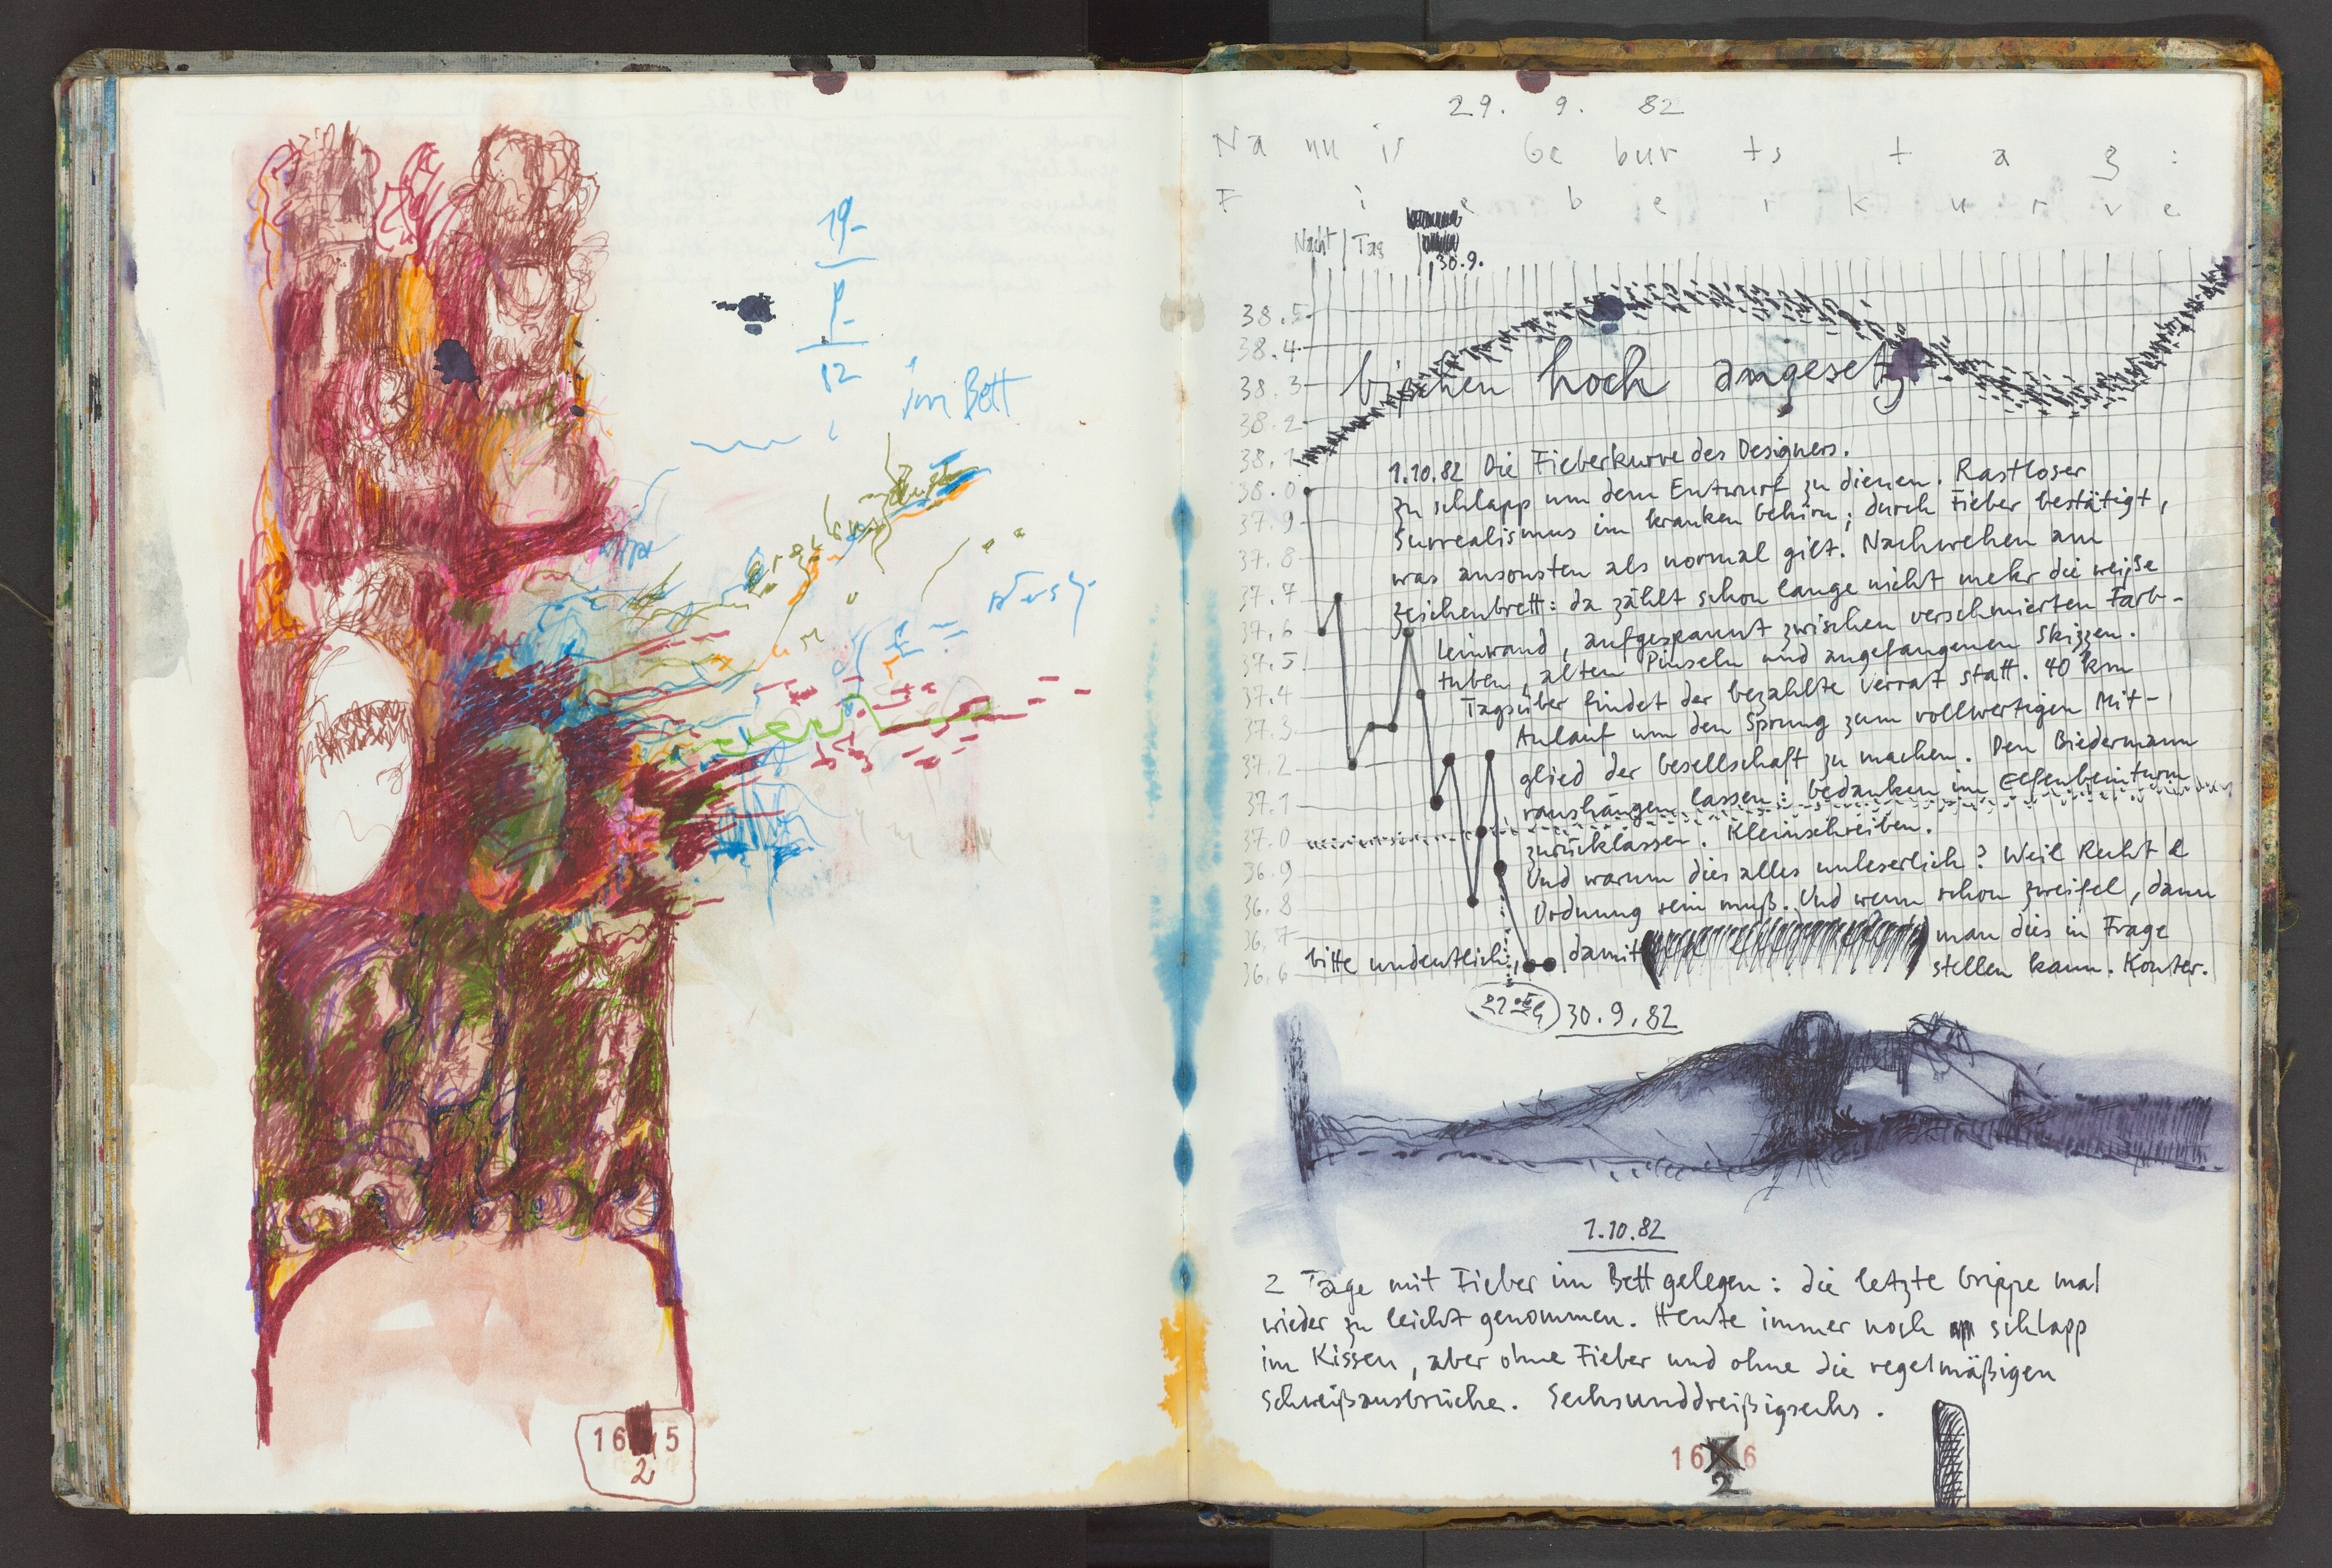 19-
9-
82
im Bett
16 5
2
29. 9. 82
Nannis Geburtstag:
Fieberkurve
Nacht | Tag
30.9.
38.5
38.4
bißchen hoch angesetzt
38.3
38.2
38.1
38.0
37.9
37.8
37.7
37.6
37.5
37.4
37.3
37.2
37.1
37.0
36.9
36.8
36.7
36.6
1.10.82 Die Fieberkurve des Designers.
Zu schlapp um dem Entwurf zu dienen. Rastloser
Surrealismus im kranken Gehirn; durch Fieber bestätigt,
was ansonsten als normal gilt. Nachwehen am
Zeichenbrett: da zählt schon lange nicht mehr die weiße
Leinwand, aufgespannt zwischen verschmierten Farb-
tuben, alten Pinseln und angefangenen Skizzen.
Tagsüber findet der bezahlte Verrat statt. 40 km
Anlauf um den Sprung zum vollwertigen Mit-
glied der Gesellschaft zu machen. Den Biedermann
raushängen lassen: Gedanken im Elfenbeinturm
zurücklassen. Kleinschreiben.
Und warum dies alles unleserlich? Weil Recht &
Ordnung sein muß. Und wenn schon Zweifel, dann
bitte undeutlich, damit man dies in Frage
stellen kann. Konter.
30.9.82
1.10.82
2 Tage mit Fieber im Bett gelegen: die letzte Grippe mal
wieder zu leicht genommen. Heute immer noch schlapp
im Kissen, aber ohne Fieber und ohne die regelmäßigen
Schweißausbrüche. Sechsunddreißigsechs.
16 6
2